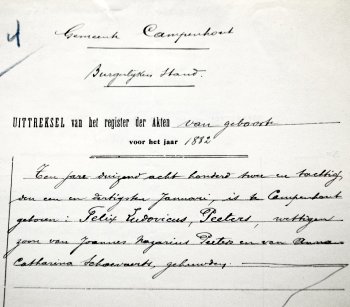 4
Gemeente Campenhout
Burgerlijken Stand.
UITTREKSEL van het register der Akten van geboorte
voor het jaar 1882
Ten jare duizend acht honderd twee en tachtig
den een en dertigsten Januari, is te Campenhout
geboren : Felix Ludovicus, Peeters, wettigen
zoon van Joannes Nazarius Peeters en van Anna
Catharina Schoevaerts, gehuwden